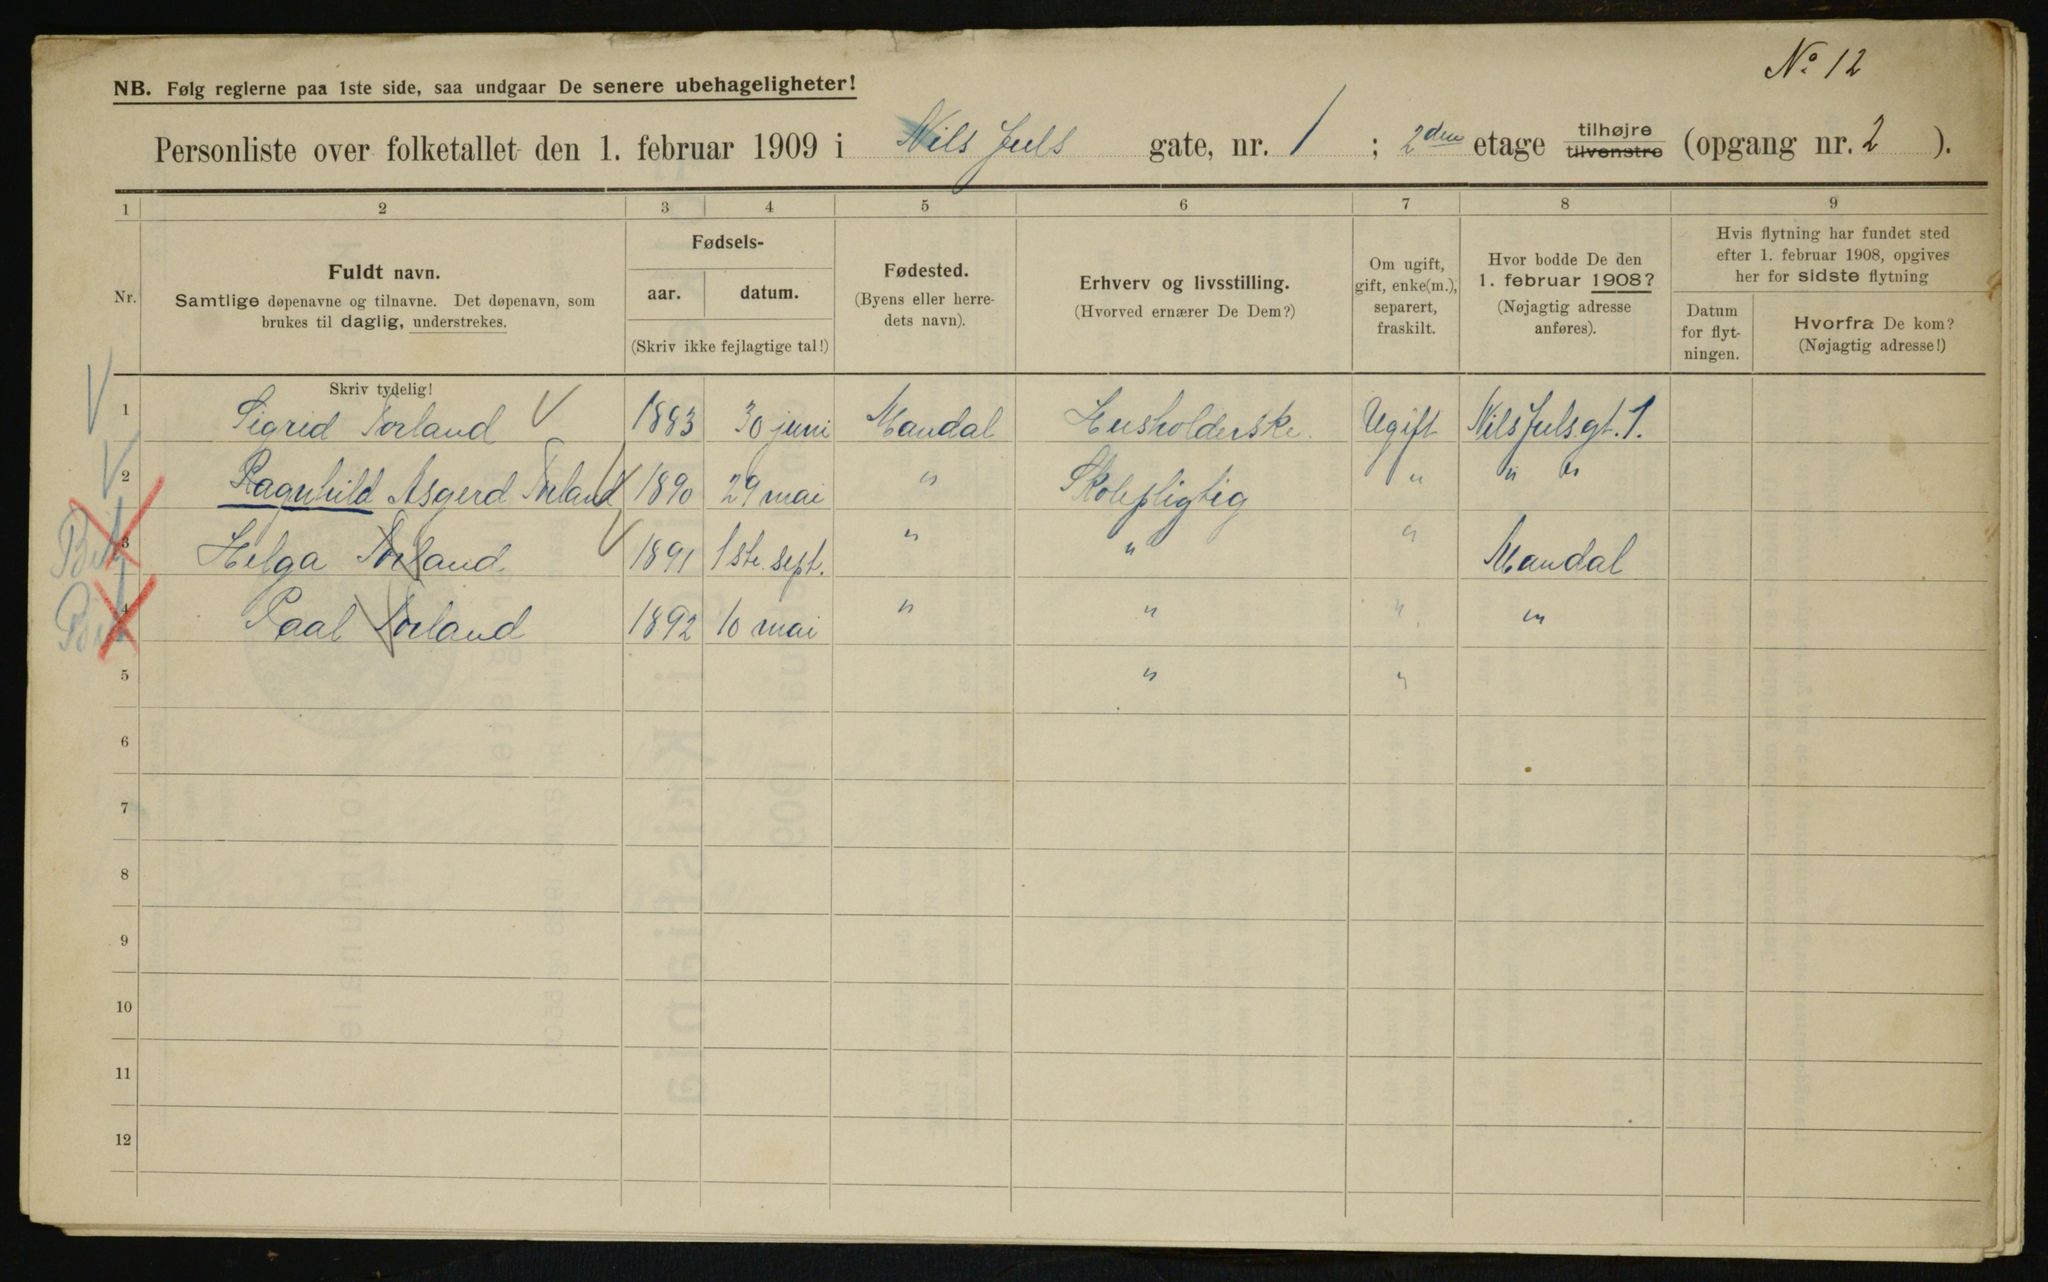 No 12
NB. Følg reglerne paa 1ste side, saa undgaar De senere ubehageligheter!
Personliste over folketallet den 1. februar 1909 i Nils Juls gate, nr. 1 ; 2den etage tilhøjre tilvenstre (opgang nr. 2 ).
1 2 3 4 5 6 7 8 9
Nr.
Fuldt navn.
Samtlige døpenavne og tilnavne. Det døpenavn, som
brukes til daglig, understrekes.
Fødsels-
aar. datum.
(Skriv ikke fejlagtige tal!)
Fødested.
(Byens eller herre-
dets navn).
Erhverv og livsstilling.
(Hvorved ernærer De Dem?)
Om ugift,
gift, enke(m.),
separert,
fraskilt.
Hvor bodde De den
1. februar 1908?
(Nøjagtig adresse
anføres).
Hvis flytning har fundet sted
efter 1. februar 1908, opgives
her for sidste flytning
Datum
for flyt-
ningen.
Hvorfra De kom?
(Nøjagtig adresse!)
Skriv tydelig!
1 Sigrid Torland 1883 30 juni Mandal Husholderske. Ugift Nils Juls gt. 1.
2 Ragnhild Asgerd Torland 1890 29 mai " Skolepligtig " " "
3 Helga Torland 1891 1ste. sept. " " " Mandal
4 Paal Torland 1892 10 mai " " " "
5 " "
6
7
8
9
10
11
12